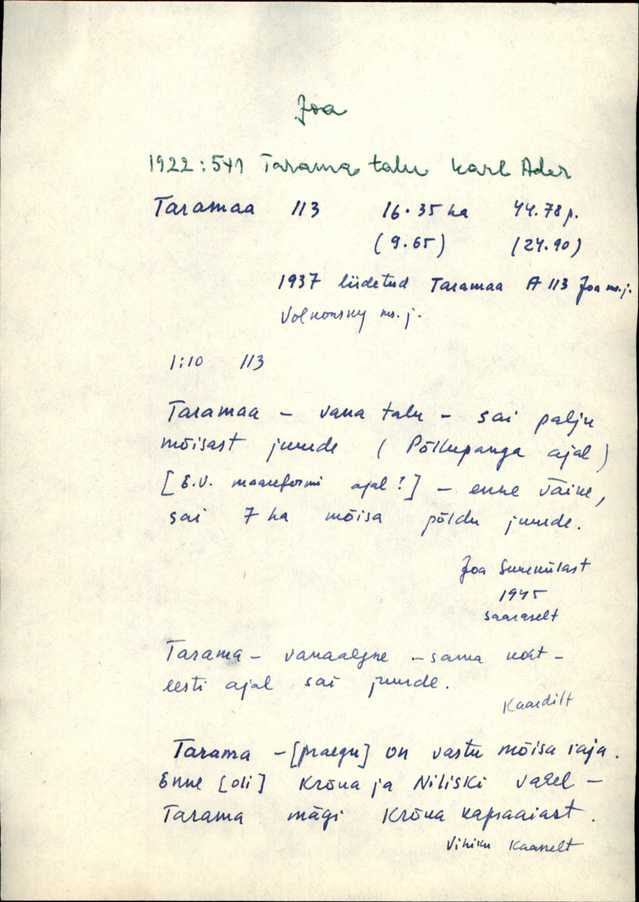 Joa
1922:541 Tarama talu Karl Ader
Taramaa 113 16.35 ha 44.78 p.
(9.65) (24.90)
1937 liidetud Taramaa A 113 Joa ms.j.
Volkonsky ms.j.
1:10 113
Taramaa – vana talu – sai palju
mõisast juurde (Põllupanga ajal)
[E.V. maareformi ajal!] – enne väike,
sai 7 ha mõisa põldu juurde.
Joa Surekülast
1945
Saaraselt
Tarama – vanaaegne – sama koht –
eesti ajal sai juurde.
Kaardilt
Tarama – [praegu] on vastu mõisa raja.
Enne [oli] Krõua ja Niliski vahel –
Tarama mägi Krõua kapsaaiast.
Vihiku Kaanelt